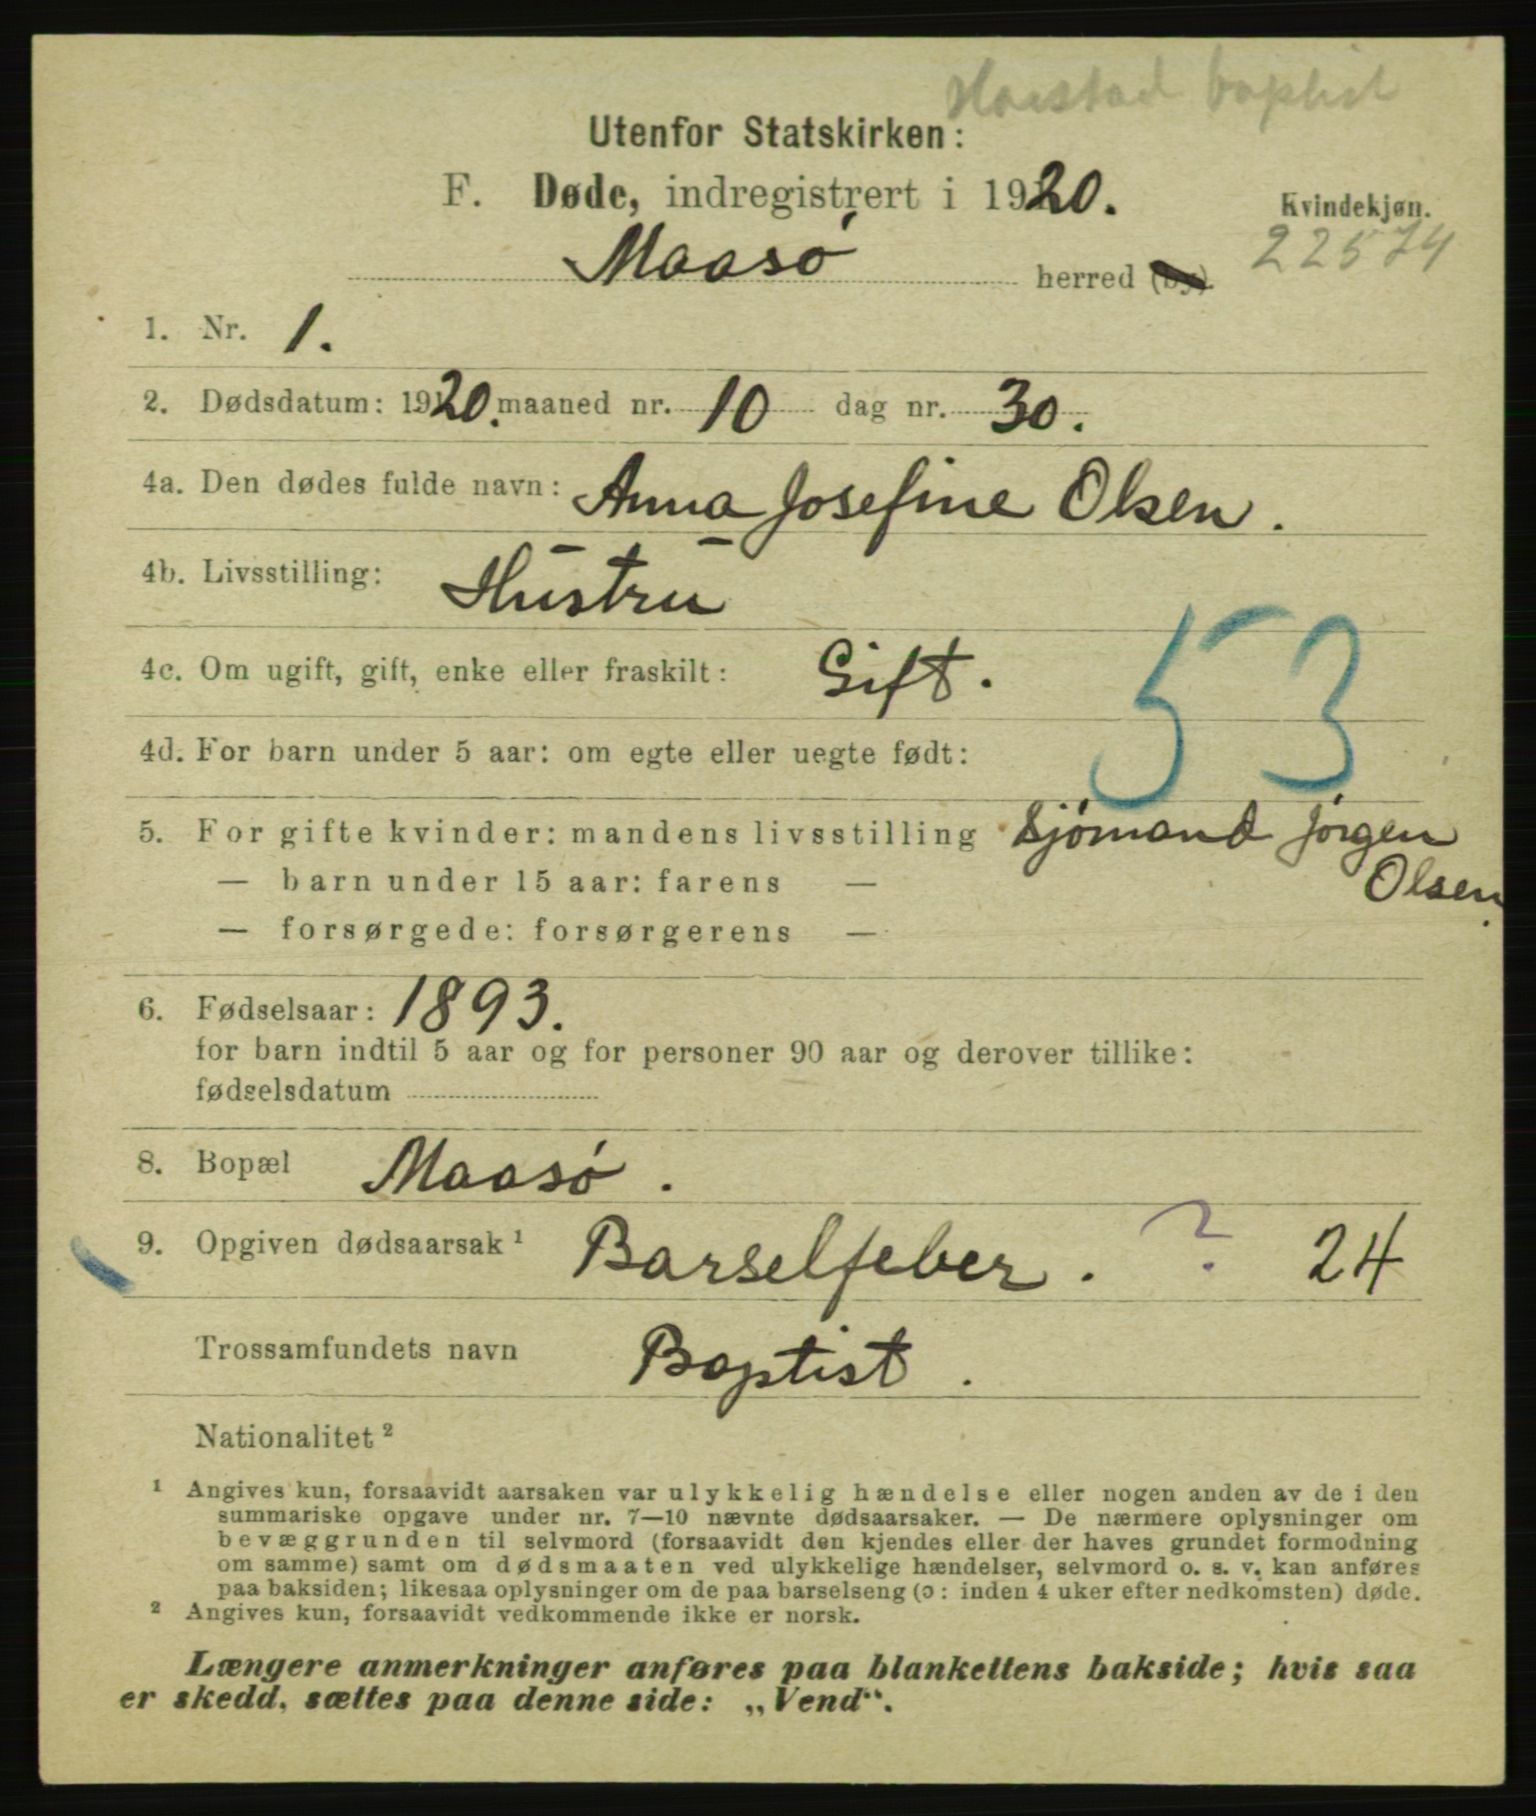 Harstad baptist
Utenfor Statskirken:
F. Døde, indregistrert i 1920.
Kvindekjøn.
22574
Maasø herred (by).
1. Nr. 1.
2. Dødsdatum: 1920. maaned nr. 10 dag nr. 30.
4a. Den dødes fulde navn: Anna Josefine Olsen.
4b. Livsstilling: Hustru
4c. Om ugift, gift, enke eller fraskilt: Gift.
53
4d. For barn under 5 aar: om egte eller uegte født:
5. For gifte kvinder: mandens livsstilling Sjømand Jørgen
— barn under 15 aar: farens — Olsen.
— forsørgede: forsørgerens —
6. Fødselsaar: 1893.
for barn indtil 5 aar og for personer 90 aar og derover tillike:
fødselsdatum
8. Bopæl Maasø.
9. Opgiven dødsaarsak ¹ Barselfeber. ? 24
Trossamfundets navn Baptist.
Nationalitet ²
¹ Angives kun, forsaavidt aarsaken var ulykkelig hændelse eller nogen anden av de i den
summariske opgave under nr. 7—10 nævnte dødsaarsaker. — De nærmere oplysninger om
bevæggrunden til selvmord (forsaavidt den kjendes eller der haves grundet formodning
om samme) samt om dødsmaaten ved ulykkelige hændelser, selvmord o. s. v. kan anføres
paa baksiden; likesaa oplysninger om de paa barselseng (ɔ: inden 4 uker efter nedkomsten) døde.
² Angives kun, forsaavidt vedkommende ikke er norsk.
Længere anmerkninger anføres paa blankettens bakside; hvis saa
er skedd, sættes paa denne side: „Vend“.